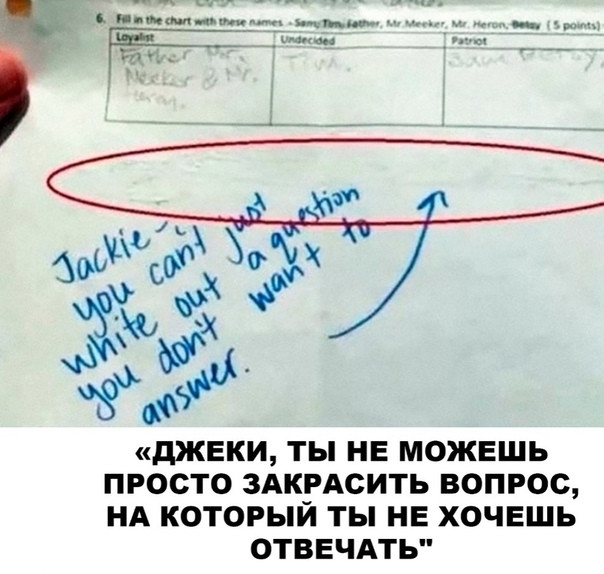 6. Fill in the chart with these names - Sam, Tim, Father, Mr. Meeker, Mr. Heron, Betsy (5 points)
Loyalist Undecided Patriot
Father Mr. Tim. Sam Betsy
Meeker & Mr.
Heron.
Jackie -
you can't just
white out a question
you don't want to
answer.
«ДЖЕКИ, ТЫ НЕ МОЖЕШЬ
ПРОСТО ЗАКРАСИТЬ ВОПРОС,
НА КОТОРЫЙ ТЫ НЕ ХОЧЕШЬ
ОТВЕЧАТЬ"